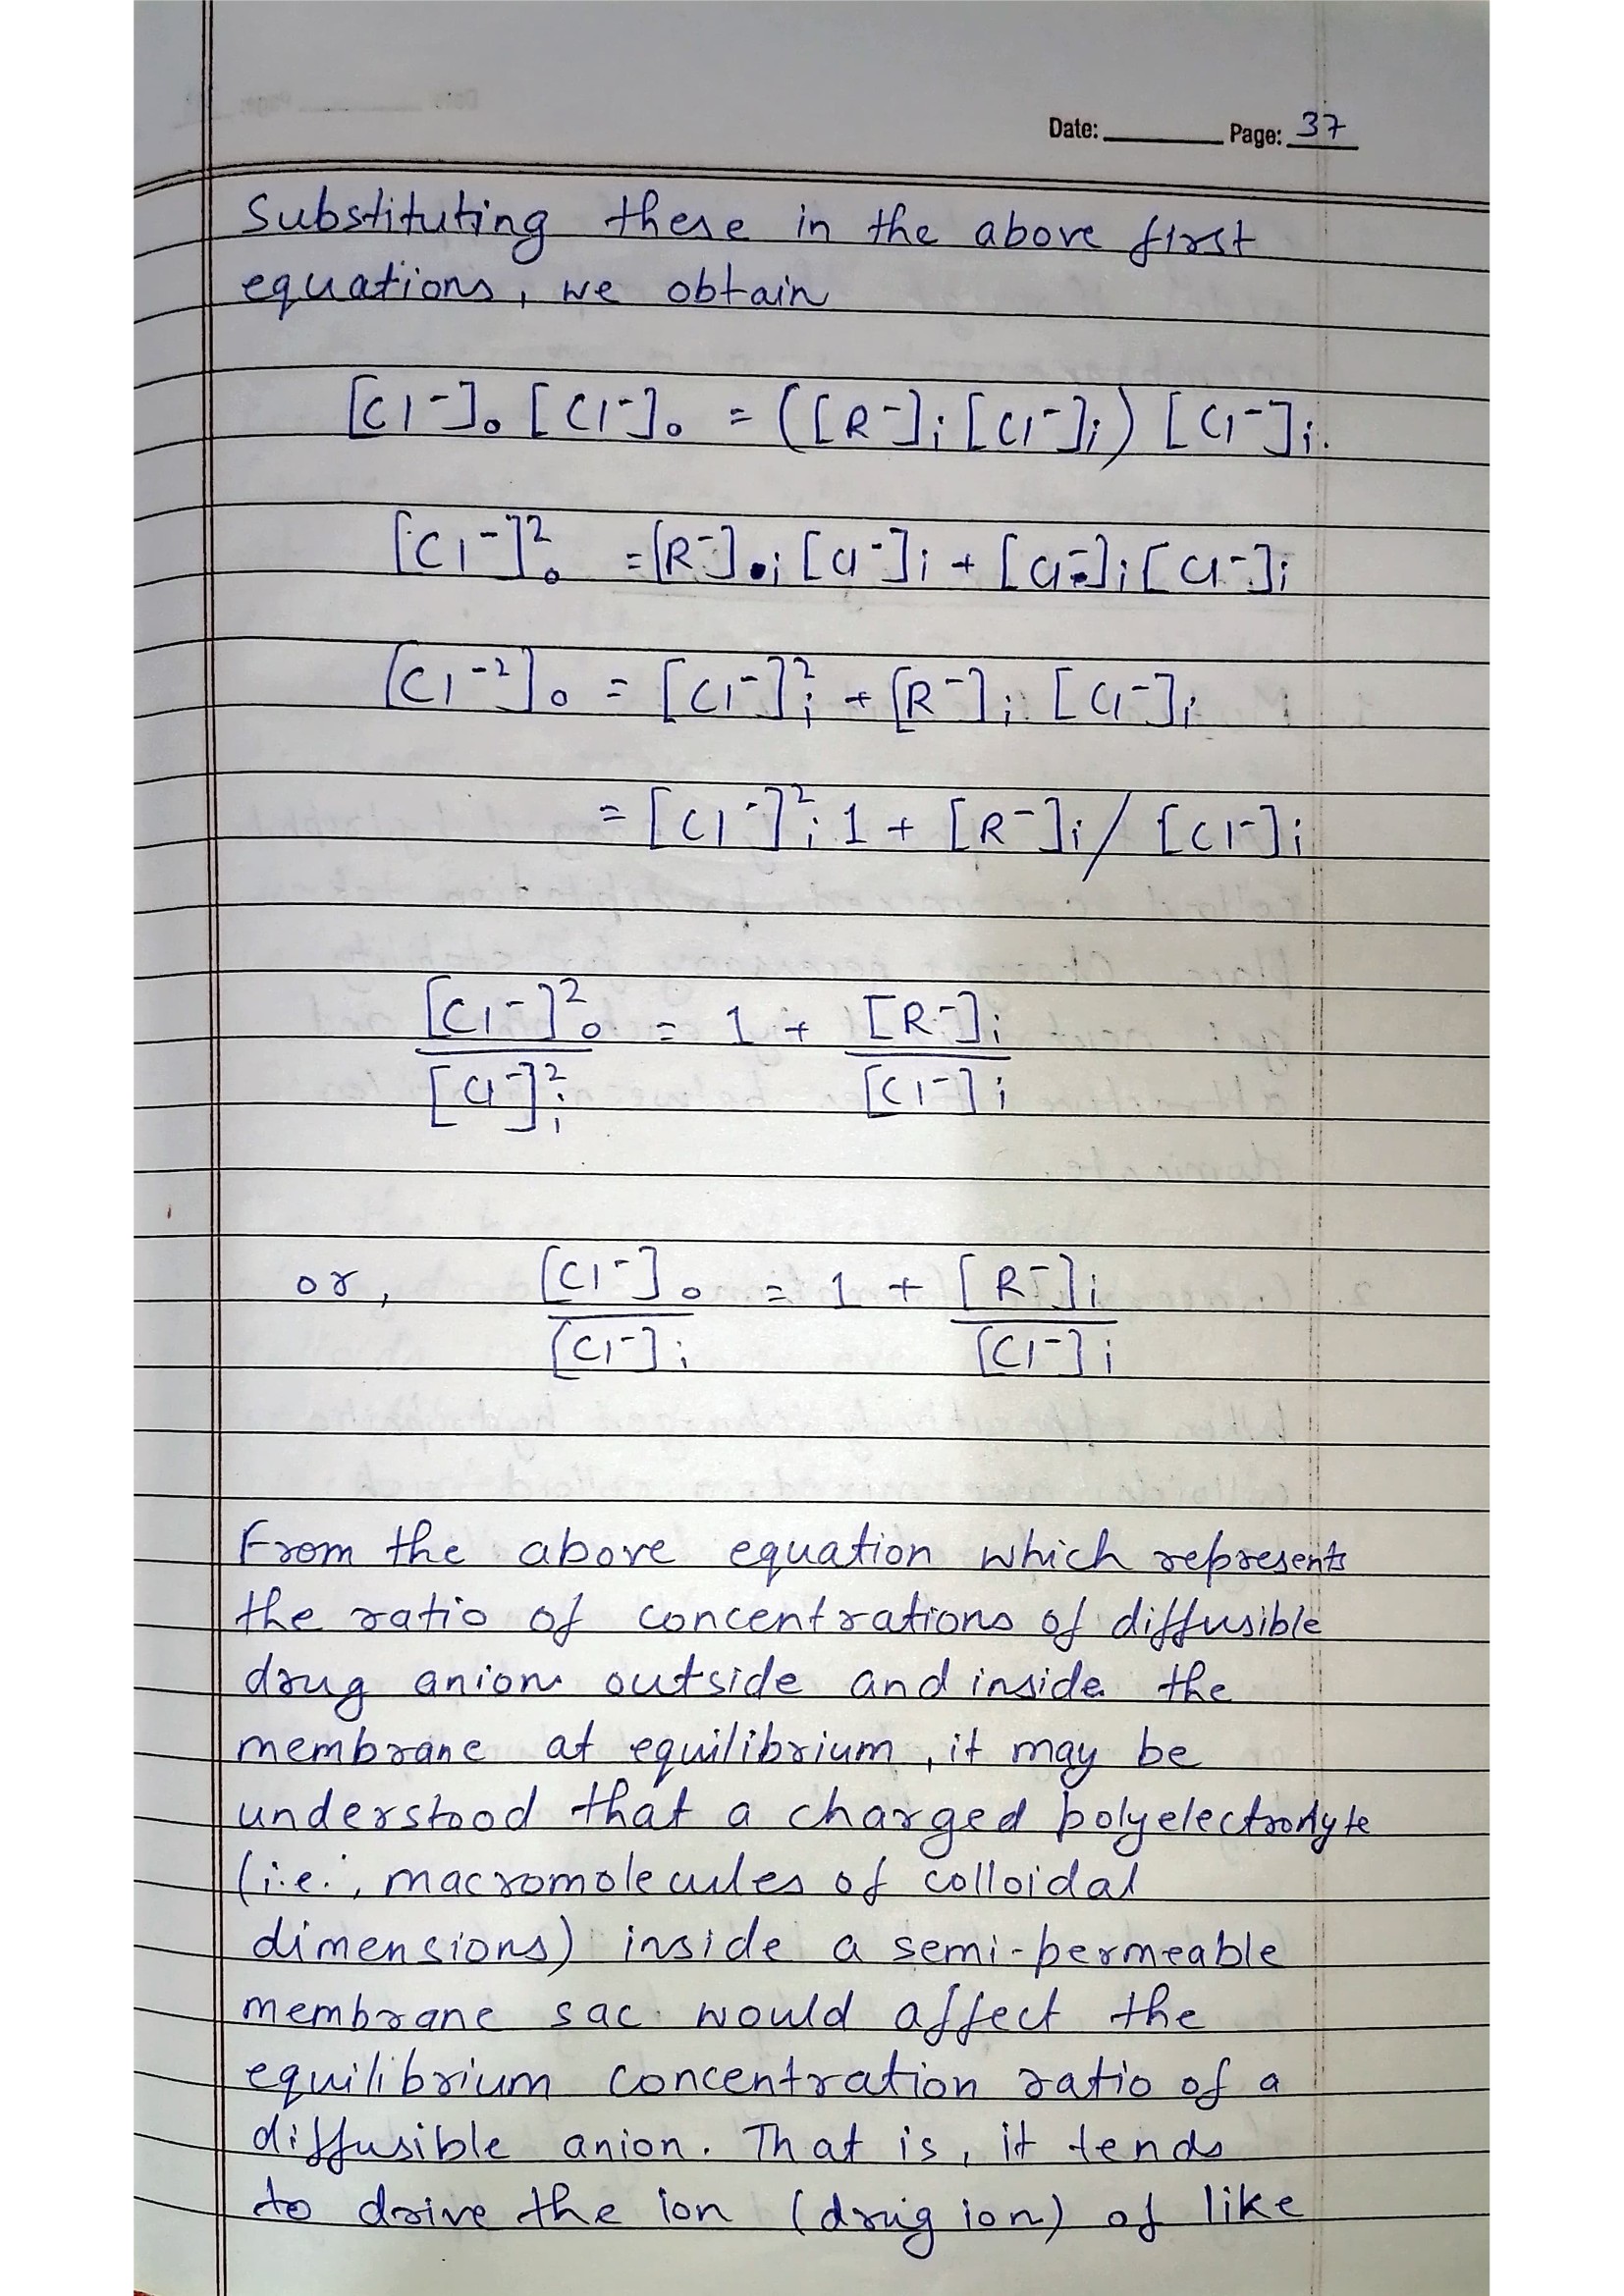 Date: Page: 37
Substituting these in the above first
equations, we obtain
[Cl⁻]₀ [Cl⁻]₀ = ([R⁻]ᵢ [Cl⁻]ᵢ) [Cl⁻]ᵢ.
[Cl⁻]²₀ = [R⁻]ᵢ [Cl⁻]ᵢ + [Cl⁻]ᵢ [Cl⁻]ᵢ
[Cl⁻²]₀ = [Cl⁻]²ᵢ + [R⁻]ᵢ [Cl⁻]ᵢ
= [Cl⁻]²ᵢ 1 + [R⁻]ᵢ / [Cl⁻]ᵢ
[Cl⁻]²₀ = 1 + [R⁻]ᵢ
[Cl⁻]²ᵢ [Cl⁻]ᵢ
or, [Cl⁻]₀ = 1 + [R⁻]ᵢ
[Cl⁻]ᵢ [Cl⁻]ᵢ
From the above equation which represents
the ratio of concentrations of diffusible
drug anion outside and inside the
membrane at equilibrium, it may be
understood that a charged polyelectrolyte
(i.e., macromolecules of colloidal
dimensions) inside a semi-permeable
membrane sac would affect the
equilibrium concentration ratio of a
diffusible anion. That is, it tends
to drive the ion (drug ion) of like